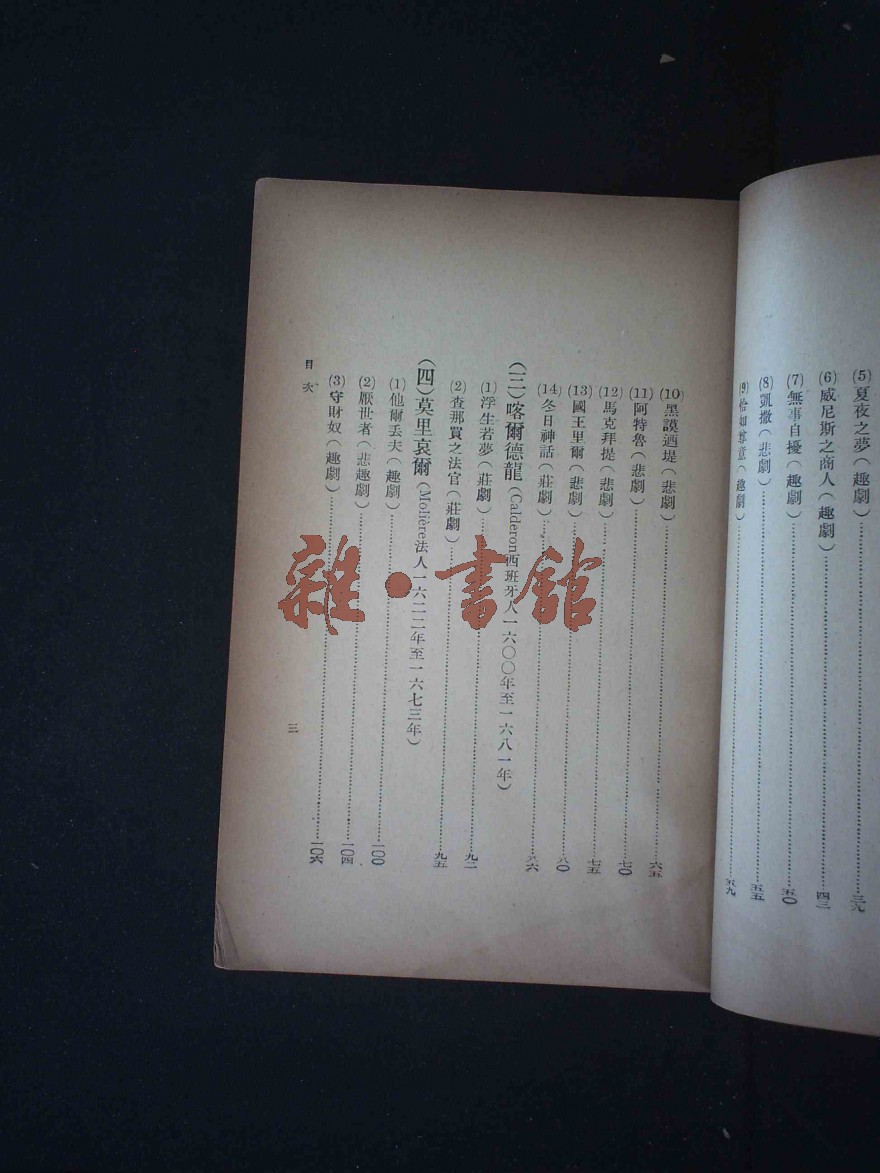 (5)夏夜之夢(趣劇)……三九
(6)威尼斯之商人(趣劇)……四三
(7)無事自擾(趣劇)……五〇
(8)凱撒(悲劇)……五五
(9)恰如尊意(趣劇)……五九
(10)黑謨迺堤(悲劇)……六五
(11)阿特魯(悲劇)……七〇
(12)馬克拜提(悲劇)……七五
(13)國王里爾(悲劇)……八〇
(14)冬日神話(莊劇)……八六
(三)喀爾德龍(Calderon西班牙人一六〇〇年至一六八一年)
(1)浮生若夢(莊劇)……九二
(2)查那買之法官(莊劇)……九五
(四)莫里哀爾(Molière法人一六二二年至一六七三年)
(1)他爾丟夫(趣劇)……一〇〇
(2)厭世者(悲趣劇)……一〇四
(3)守財奴(趣劇)……一〇六
目次
三
雜·書館